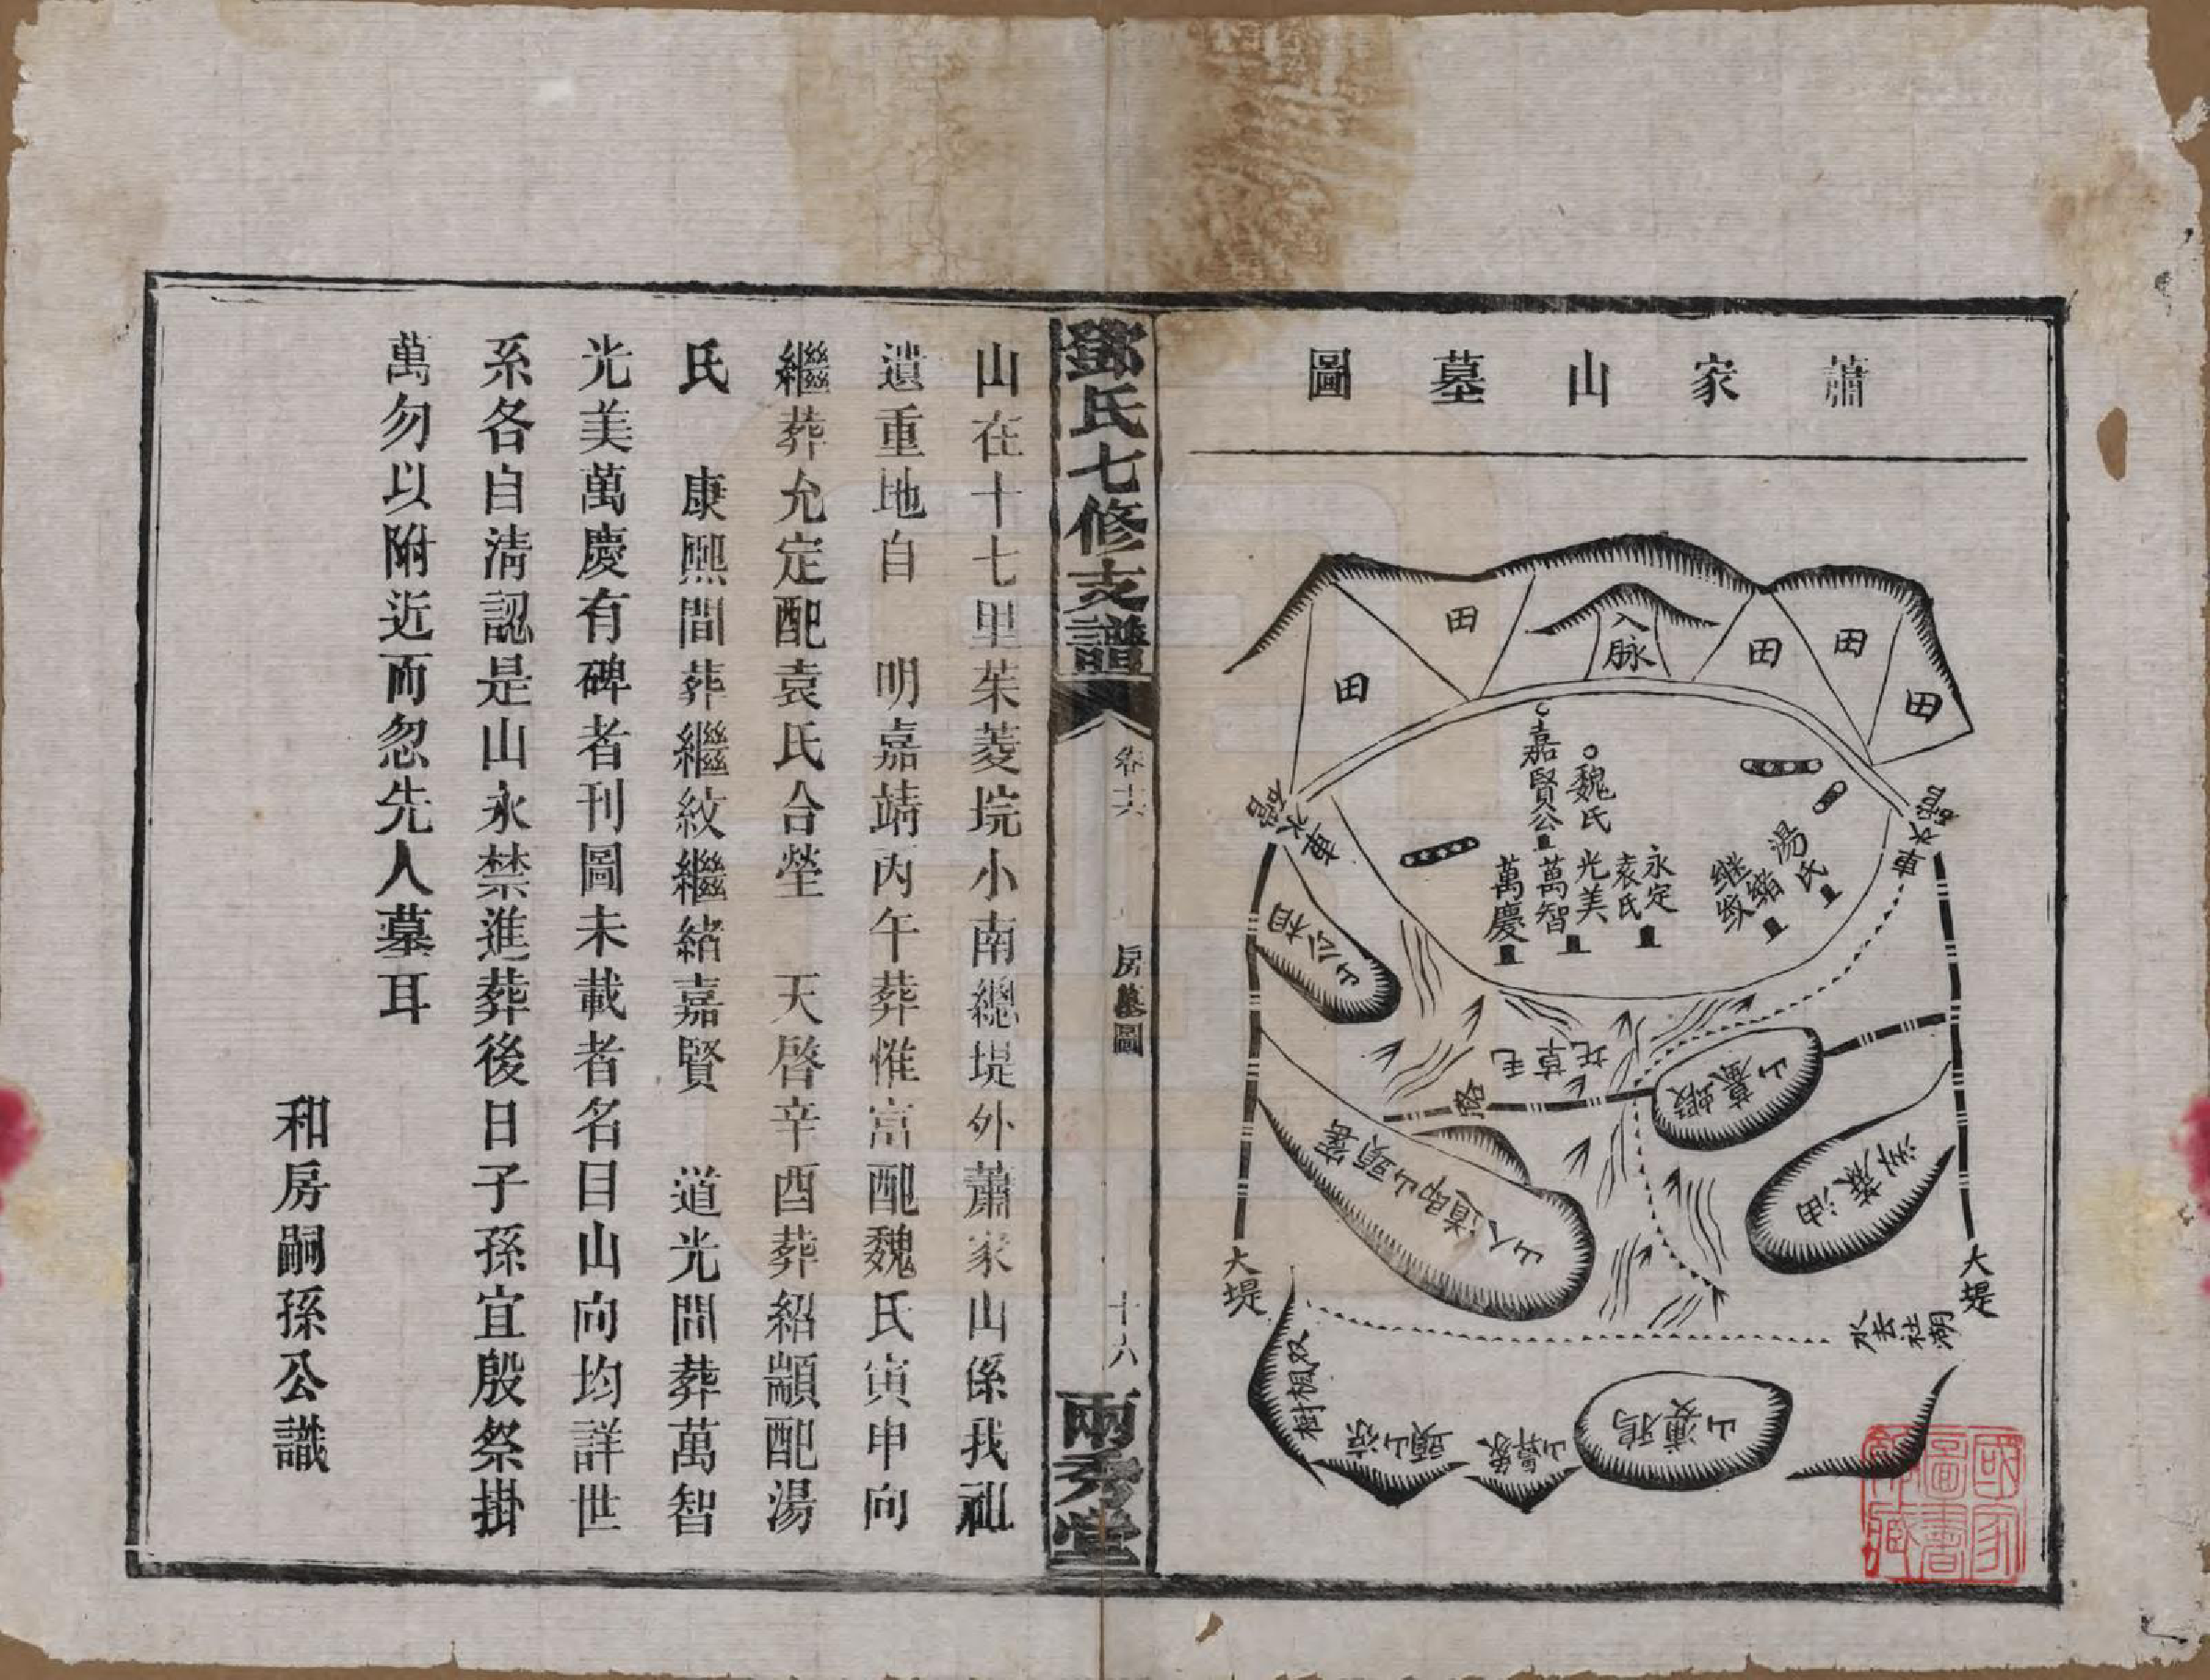 蕭家山墓圖
田
田
入脉
田
田
田
嘉賢公
魏氏
萬慶
萬智
光美
袁氏
永定
湯氏
継緒
継紋
車水
車水
相公山
毛草坑
路
蝦蟇山
道人山
油蔴
大堤
大堤
湖社去水
双楓樹
凉山頭
象鼻山
鄧氏七修支譜
卷十六
房墓圖
十八
兩秀堂
山在十七里茱菱垸小南總堤外蕭家山係我祖
遺重地自 明嘉靖丙午葬惟富配魏氏寅申向
繼葬允定配袁氏合塋 天啓辛酉葬紹顓配湯
氏 康熙間葬繼紋繼緒嘉賢 道光間葬萬智
光美萬慶有碑者刊圖未載者名目山向均詳世
系各自淸認是山永禁進葬後日子孫宜殷祭掛
萬勿以附近而忽先人墓耳
和房嗣孫公識
國家圖書館藏